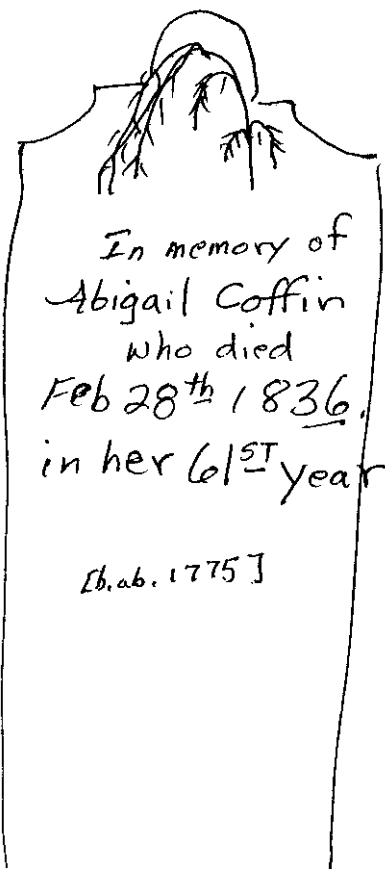 In memory of
Abigail Coffin
who died
Feb 28th 1836.
in her 61ST year
[b.ab. 1775]